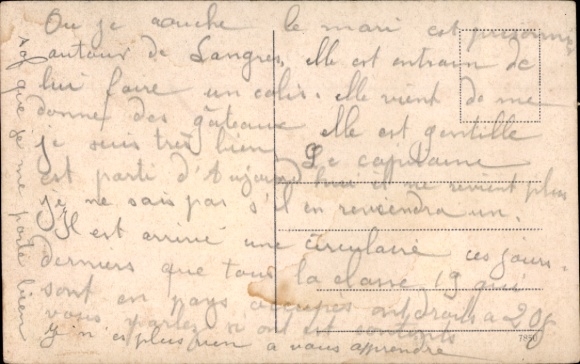 Ou je couche le mari est prisonnier
autour de Langres, elle est entrain de
lui faire un colis. elle vient de me
donné des gâteaux elle est gentille
je suis très bien Le capitaine
est parti d'Aujourd'hui il ne revient plus
je ne sais pas s'il en reviendra un.
Il est arrivé une circulaire ces jours
derniers que tous la classe 19 qui
sont en pays occupés ont droits a 20j
vous parlez si ont est contents
Je n'es plus rien a vous apprendre
que je me porte bien
7850